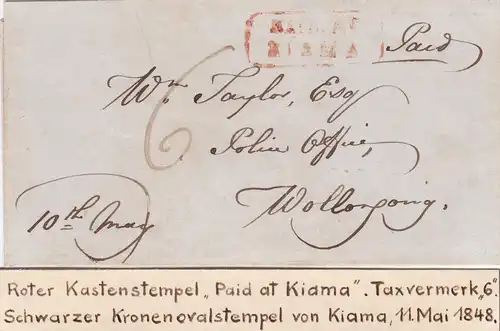 PAID AT
KIAMA
Paid
Wm Taylor, Esq
6
Police Office,
Wollongong.
10th May
Roter Kastenstempel „Paid at Kiama". Taxvermerk „6".
Schwarzer Kronenovalstempel von Kiama, 11. Mai 1848.